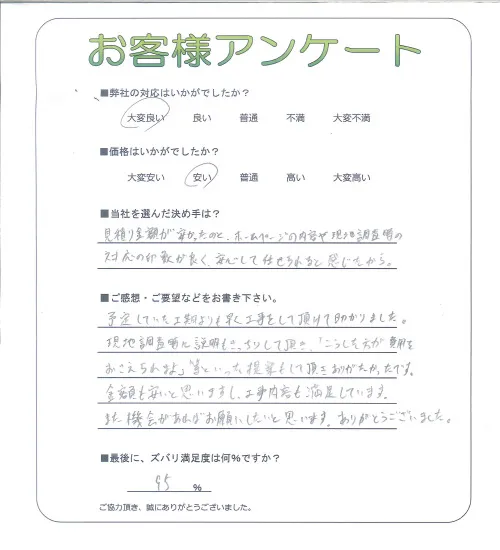 お客様アンケート
■弊社の対応はいかがでしたか?
大変良い 良い 普通 不満 大変不満
■価格はいかがでしたか?
大変安い 安い 普通 高い 大変高い
■当社を選んだ決め手は?
見積り金額が安かったのと、ホームページの内容や現地調査時の
対応の印象が良く、安心して任せられると感じたから。
■ご感想・ご要望などをお書き下さい。
予定していた工期よりも早く工事をして頂けて助かりました。
現地調査時に説明もきっちりして頂き、「こうした方が費用を
おさえられますよ」等といった提案もして頂きありがたかったです。
金額も安いと思いますし、工事内容も満足しています。
また機会があればお願いしたいと思います。ありがとうございました。
■最後に、ズバリ満足度は何%ですか?
95 %
ご協力頂き、誠にありがとうございました。